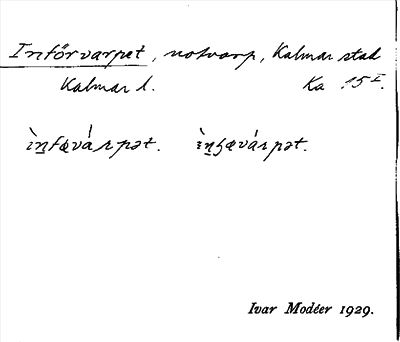 Införvarpet, notvarp, Kalmar stad
Kalmar l. Ka 15 I.
ìn̲fœvárpət. ìn̲fœvárpət.
Ivar Modéer 1929.